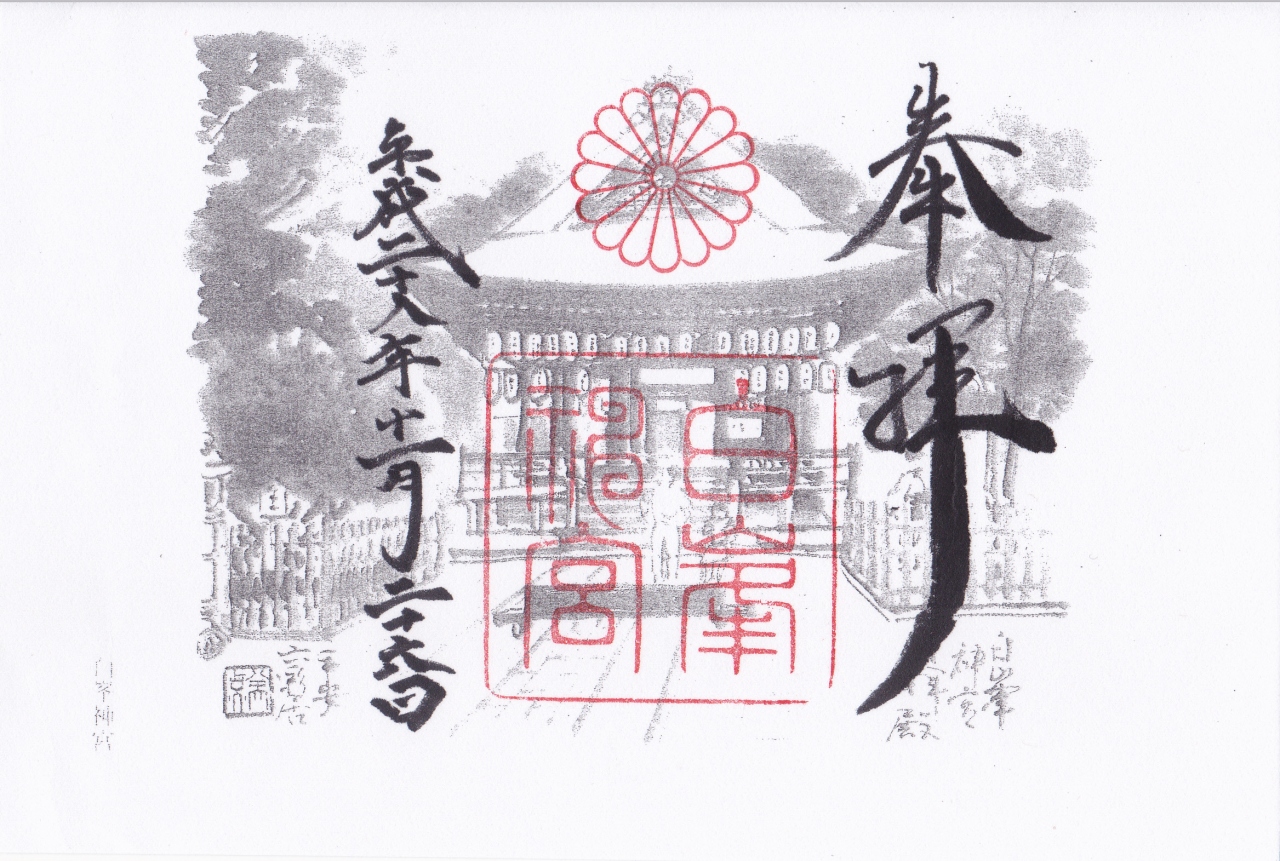 奉拝
白峯
神宮
平成二十八年十一月二十六日
白峯
神宮
拝殿
白峯神宮